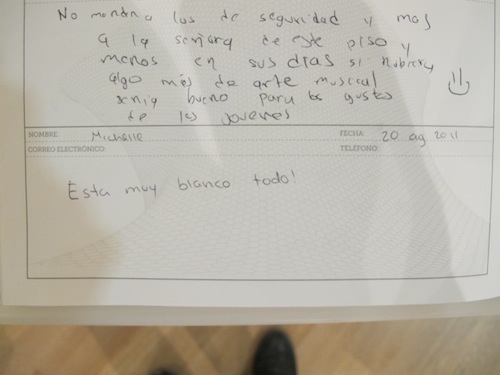 No mandn a los de seguridad y mas
a la señora de este piso y
menos en sus dias si hubiera
algo más de arte musical
seria bueno para los gustos
de los jovenes
NOMBRE: Michelle FECHA: 20 ag 2011
CORREO ELECTRÓNICO: TELÉFONO:
Esta muy blanco todo!